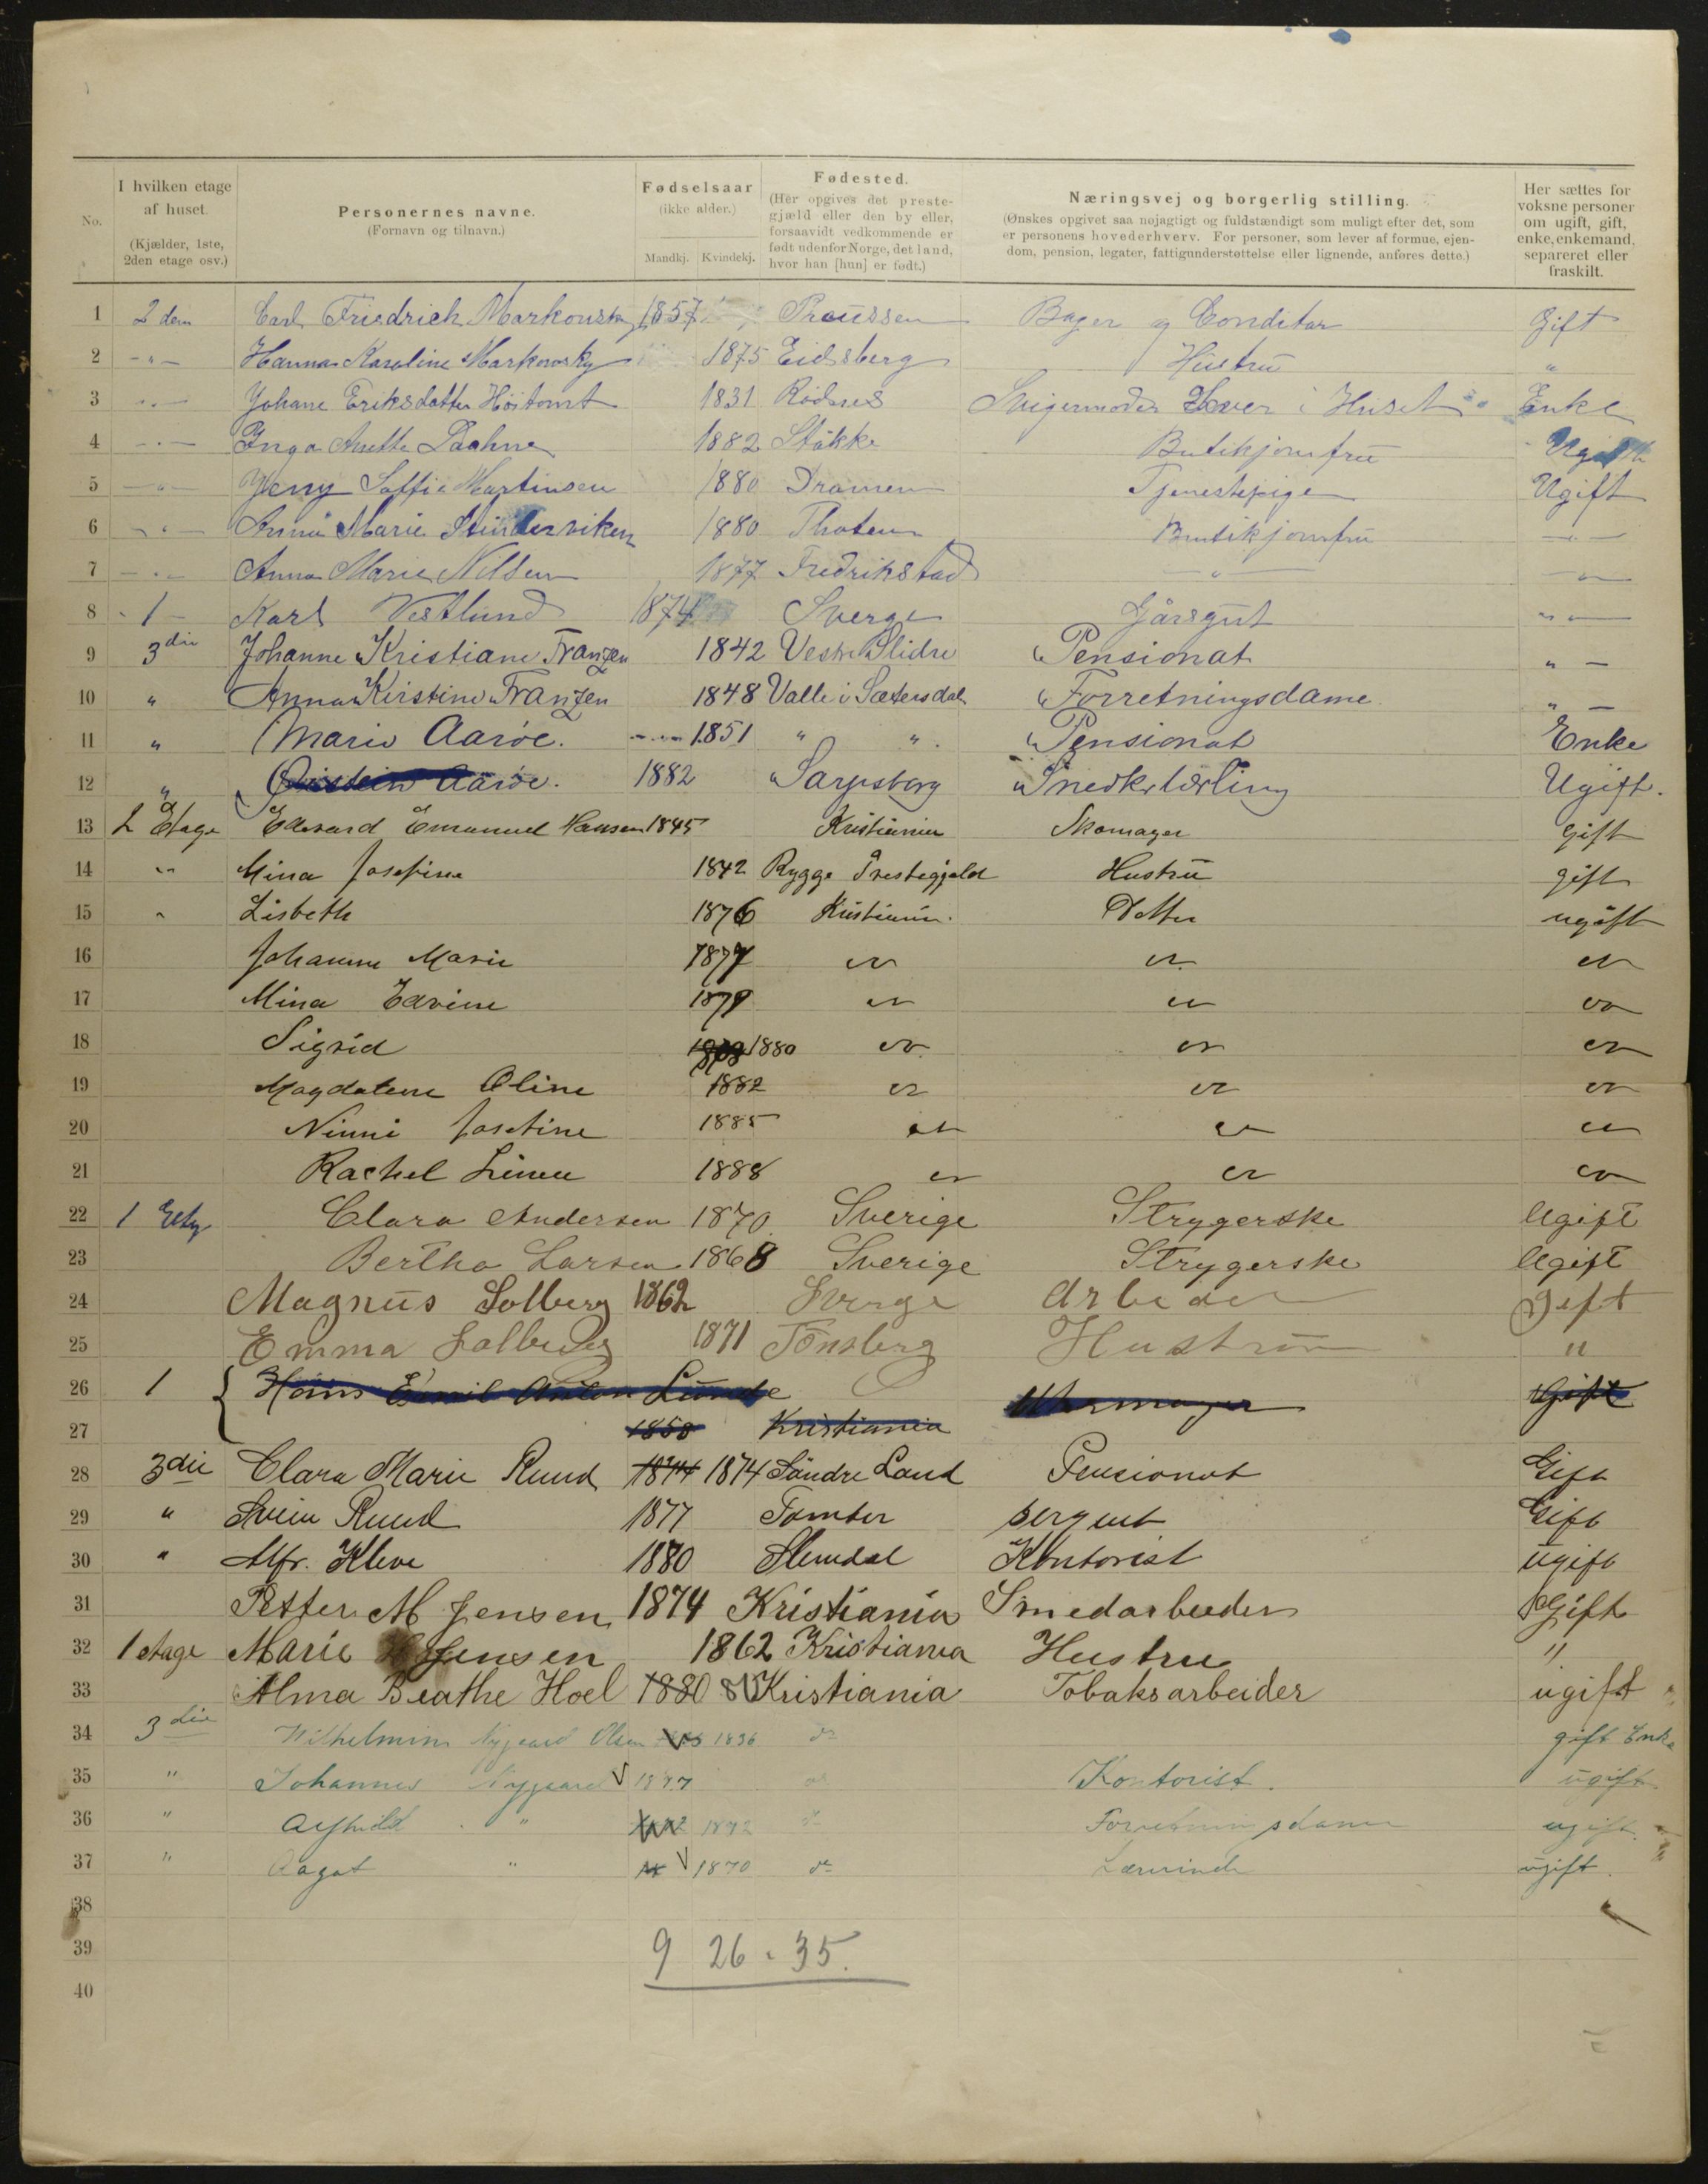 No.
I hvilken etage af huset.
(Kjælder, 1ste, 2den etage osv.)
Personernes navne.
(Fornavn og tilnavn.)
Fødselsaar
(ikke alder.)
Mandkj. Kvindekj.
Fødested.
(Her opgives det prestegjæld eller den by eller, forsaavidt vedkommende er født udenfor Norge, det land, hvor han [hun] er født.)
Næringsvej og borgerlig stilling.
(Ønskes opgivet saa nøjagtigt og fuldstændigt som muligt efter det, som er personens hovederhverv. For personer, som lever af formue, ejendom, pension, legater, fattigunderstøttelse eller lignende, anføres dette.)
Her sættes for voksne personer om ugift, gift, enke, enkemand, separeret eller fraskilt.
1 2den Carl Friedrich Markowsky 1857 Preussen Bager og Conditor Gift
2 - " - Hanna Karoline Markowsky 1875 Eidsberg Hustru "
3 - " - Johane Eriksdatter Höitomt 1831 Rödnes Svigermoder Lever i Huset Enke
4 - " - Inga Anette 1882 Stokke Butikjomfru Ugift
5 - " - Jenny Soffie Martinsen 1880 Dramen Tjenestepige Ugift
6 - " - Anna Marie 1880 Thoten Butikjomfru - " -
7 - " - Anna Marie Nilsen 1877 Fredrikstad - " - - " -
8 1 Karl Vestlund 1874 Sverge Gårsgut - " -
9 3die Johanne Kristiane Franzen 1842 Vestre Slidre Pensionat " -
10 " Anna Kirstine Franzen 1848 Valle i Sætersdal Forretningsdame " -
11 " Marie Aaröe. 1851 " ". Pensionat Enke
12 " Aaröe. 1882 Sarpsborg Snedkerlærling Ugift.
13 2 Etage Edevard Emanuel Hansen 1845 Kristiania Skomager gift
14 " Mina Josefine 1842 Rygge Prestegjæld Hustru gift
15 " Lisbeth 1876 Kristiania. Datter ugift
16 Johanne Marie 1877 " " "
17 Mina Edvine 1879 " " "
18 Sigrid 1880 " " "
19 Magdalene Oline 1882 " " "
20 Ninni Josefine 1885 " " "
21 Rachel 1888 " " "
22 1 Clara Andersen 1870 Sverige Strygerske Ugift
23 Bertha Larsen 1868 Sverige Strygerske Ugift
24 Magnus Solberg 1862 Sverge Arbeder gift
25 Emma Solberg 1871 Tönsberg Hustru "
26 1 Hans Emil Anton Lunde Uhrmager Gift
27 1850 Kristiania
28 3die Clara Marie Ruud 1874 1874 Söndre Land Pensionat Gift
29 " Svein Ruud 1877 Tomter sergent Gift
30 " Alfr. Kleve 1880 Slemdal Kontorist ugift
31 Petter M Jensen 1874 Kristiania Smedarbeider Gift
32 1 etage Marie Jensen 1862 Kristiania Hustru "
33 Alma Beathe Hoel 1880 80 Kristiania Tobaksarbeider ugift
34 3die Wilhelmine Nygaard Olsen 1836 do gift Enke
35 " Johannes Nygaard 1877 do Kontorist. ugift
36 " Alfhild " 1872 do Forretningsdame ugift.
37 " Aagot " 1870 do Lærerinde ugift.
38
39 9 26 = 35.
40